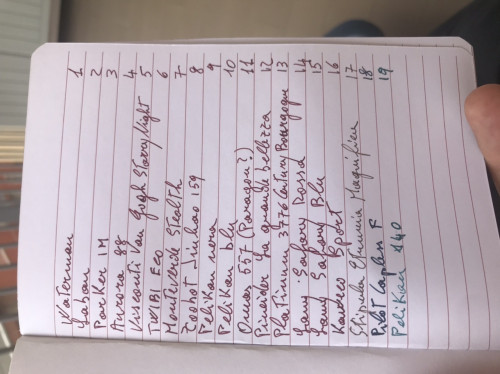 Waterman 1
Laban 2
Parker IM 3
Aurora 88 4
Visconti Van Gogh Starry Night 5
TWSBI Eco 6
Monteverde Stealth 7
Jinhao 159 8
Pelikan nera 9
Pelikan blu 10
Omas 557 (Paragon?) 11
Pineider La grande bellezza 12
Platinum 3776 Century Bourgogne 13
Lamy Safary Rossa 14
Lamy Safary Blu 15
Kaweco Sport 16
Stipula Etruria Magnifica 17
Pilot Caplen F 18
Pelikan 140 19